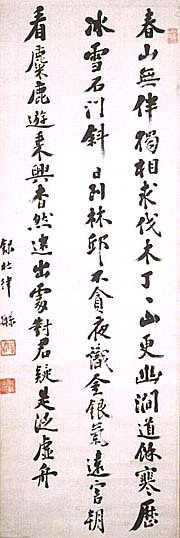 春山無伴獨相求伐木丁丶山更幽澗道餘寒歷
冰雪石門斜日到林邱不貪夜識金銀氣遠害朝
看麋鹿遊乘興杳然迷出處對君疑是泛虛舟